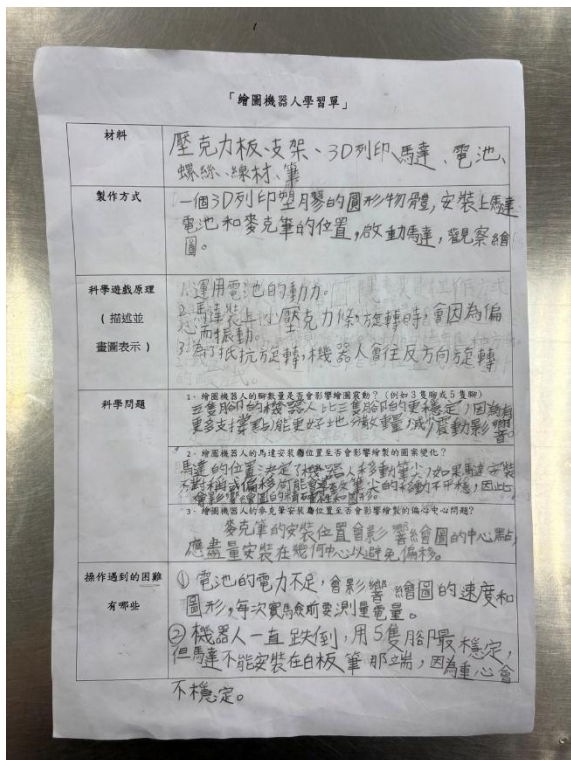 「繪圖機器人學習單」
材料
壓克力板、支架、3D列印、馬達、電池、
螺絲、線材、筆
製作方式
一個3D列印塑膠的圓形物體,安裝上馬達
電池和麥克筆的位置,啟動馬達,觀察繪
圖。
科學遊戲原理
(描述並
畫圖表示)
1.運用電池的動力。
2.馬達裝上小壓克力條,旋轉時,會因為偏
心而振動。
3.為了抵抗旋轉,機器人會往反方向旋轉
科學問題
1、繪圖機器人的腳數量是否會影響繪圖震動?(例如3隻腳或5隻腳)
五隻腳的機器人比三隻腳的更穩定,因為有
更多支撐點,能更好地分散重量,減少震動影響。
2、繪圖機器人的馬達安裝位置至否會影響繪製的圖案變化?
馬達的位置決定了機器人移動筆尖,如果馬達安裝
不對稱或偏移可能會導致筆尖的移動不平穩,因此
會影響繪圖的精確性和圖形。
3、繪圖機器人的麥克筆安裝位置至否會影響繪製的偏心中心問題?
麥克筆的安裝位置會影響繪圖的中心點,
應盡量安裝在幾何中心以避免偏移。
操作遇到的困難
有哪些
①電池的電力不足,會影響繪圖的速度和
圖形,每次實驗前要測量電量。
②機器人一直跌倒,用5隻腳最穩定,
但馬達不能安裝在白板筆那端,因為重心會
不穩定。